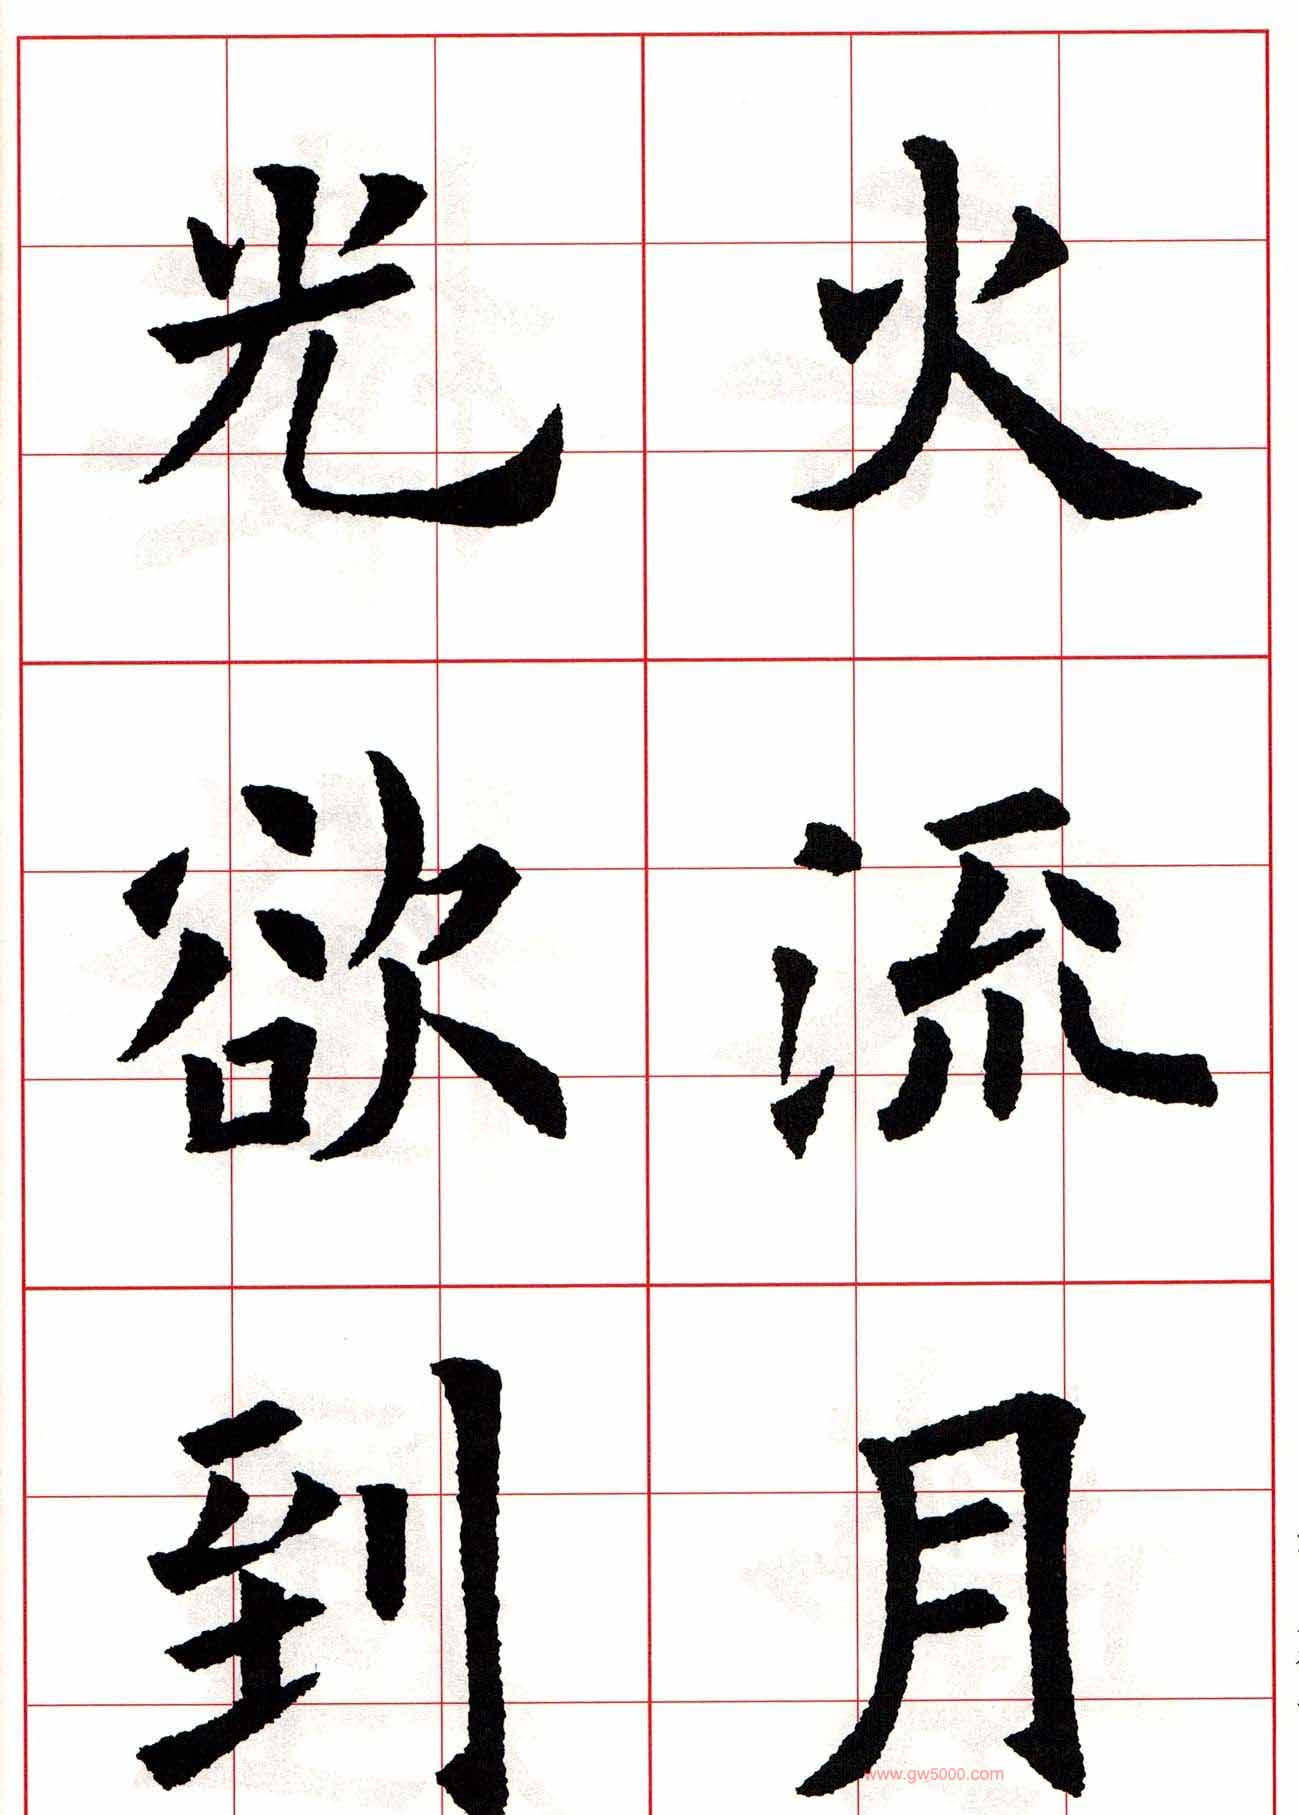 火流月
光欲到
www.gw5000.com